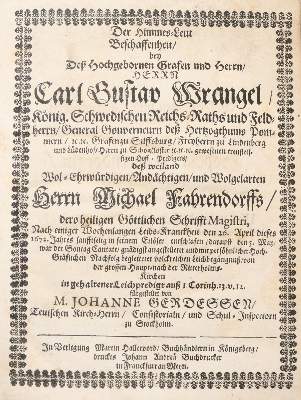 Der Himmels-Leut
Beschaffenheit/
bey
Deß Hochgebornen Grafen und Herrn/
HERRN
Carl Gustav Wrangel/
König. Schwedischen Reichs-Raths und Feld-
herrn/ General Gouverneurn deß Hertzogthums Pom-
mern/ Grafen zu Sylffsburg/ Freyherrn zu Lindenberg
und Herrn zu gewesenen
Hoff-Prediger/
deß weiland
Wol-Ehrwürdigen/ Andächtigen/ und Wolgelarten
Herrn Michael Fahrendorffs/
dero heiligen Göttlichen Schrifft Magistri,
Nach einiger Wochenlangen Leibs-Kranckheit den 26. April dieses
1672. Jahres sanfftselig in seinem Erlöser entschlafen darauff den 5. May
war der Sontag Cantate
Gräflichen Nachfolg begleiteter volckreichen Leichbegängnuß von
der grossen Haupt nach der Ritterholms-
Kirchen
in gehaltener Leichpredigt auß 1 Corinth. 13. v. 12.
fürgestellet von
M. JOHANNE GERDESSEN/
Teutschen Kirch-Herrn/ Consistorialn/ und Schul-Inspectorn
zu Stockholm.
In Verlegung Martin Hallervord/ Buchhändlern in Königsberg/
druckts Johann Andreä Buchdrucker
in Franckfurt am Mayn.